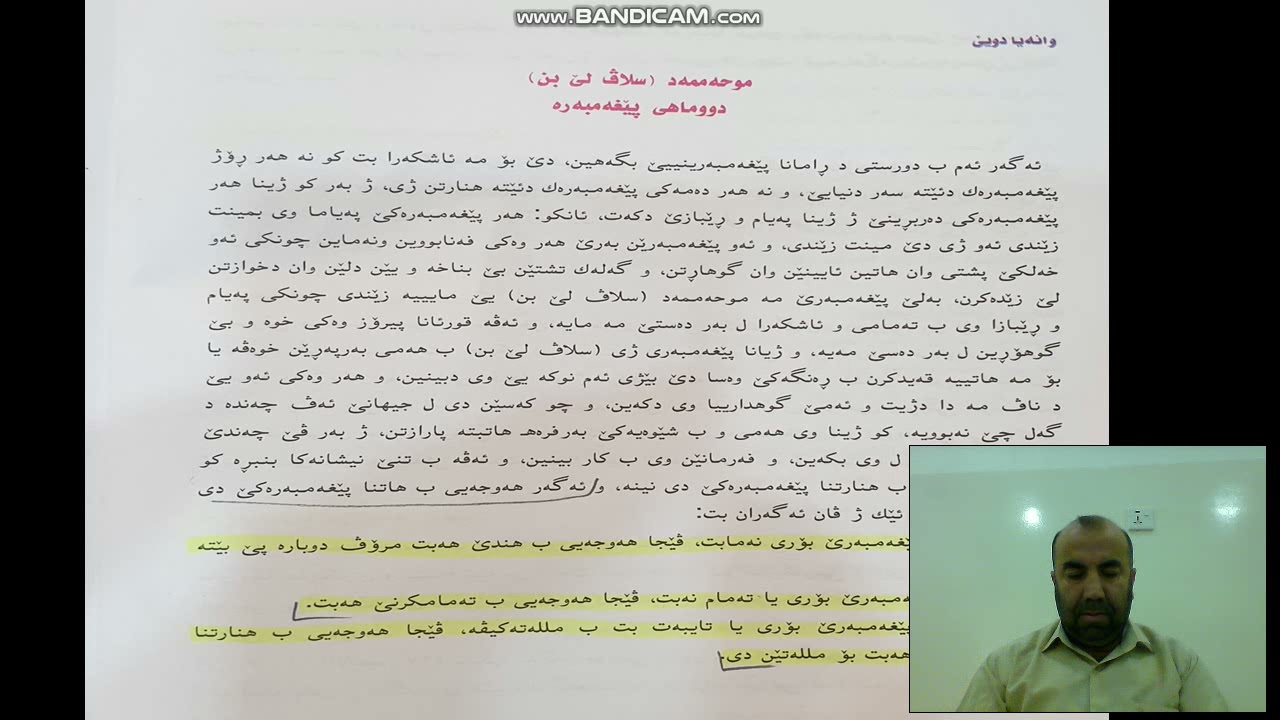 www.BANDICAM.com
وانەیا دویێ
موحەممەد (سلاڤ لێ بن)
دووماهی پێغەمبەرە
ئەگەر ئەم ب دورستی د ڕامانا پێغەمبەرینییێ بگەهین، دێ بۆ مە ئاشکەرا بت کو نە هەر ڕۆژ
پێغەمبەرەك دئێتە سەر دنیایێ، و نە هەر دەمەکی پێغەمبەرەك دئێتە هنارتن ژی، ژ بەر کو ژینا هەر
پێغەمبەرەکی دەربڕینێ ژ ژینا پەیام و ڕێبازێ دکەت، ئانکو: هەر پێغەمبەرەکێ پەیاما وی بمینت
زێندی ئەو ژی دێ مینت زێندی، و ئەو پێغەمبەرێن بەرێ هەر وەکی فەنابووین ونەماین چونکی ئەو
خەلکێ پشتی وان هاتین ئایینێن وان گوهاڕتن، و گەلەك تشتێن بێ بناخە و یێن دلێن وان دخوازتن
لێ زێدەکرن، بەلێ پێغەمبەرێ مە موحەممەد (سلاڤ لێ بن) یێ ماییە زێندی چونکی پەیام
و ڕێبازا وی ب تەمامی و ئاشکەرا ل بەر دەستێ مە مایە، و ئەڤە قورئانا پیرۆز وەکی خوە و بێ
گوهۆڕین ل بەر دەسێ مەیە، و ژیانا پێغەمبەری ژی (سلاڤ لێ بن) ب هەمی بەرپەڕێن خوەڤە یا
بۆ مە هاتییە قەیدکرن ب ڕەنگەکێ وەسا دێ بێژی ئەم نوکە یێ وی دبینین، و هەر وەکی ئەو یێ
د ناڤ مە دا دژیت و ئەمێ گوهدارییا وی دکەین، و چو کەسێن دی ل جیهانێ ئەڤ چەندە د
گەل چێ نەبوویە، کو ژینا وی هەمی و ب شێوەیەکێ بەرفرەهـ هاتبتە پارازتن، ژ بەر ڤێ چەندێ
ل وی بکەین، و فەرمانێن وی ب کار بینین، و ئەڤە ب تنێ نیشانەکا بنبڕە کو
ب هنارتنا پێغەمبەرەکێ دی نینە، و ئەگەر هەوجەیی ب هاتنا پێغەمبەرەکێ دی
ئێك ژ ڤان ئەگەران بت:
بۆری نەمابت، ڤێجا هەوجەیی ب هندێ هەبت مرۆڤ دوبارە پێ بێتە
بۆری یا تەمام نەبت، ڤێجا هەوجەیی ب تەمامکرنێ هەبت.
بۆری یا تایبەت بت ب مللەتەکیڤە، ڤێجا هەوجەیی ب هنارتنا
هەبت بۆ مللەتێن دی.